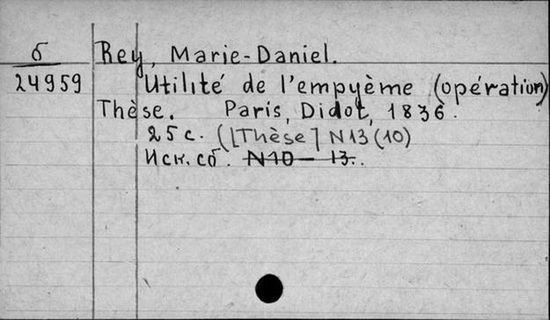 б Rey, Marie-Daniel.
24959 Utilité de l'empyème (opération)
Thèse. Paris, Didot, 1836.
25 c. ([Thèse] N13(10)
Иск. сб. N10 – 13.